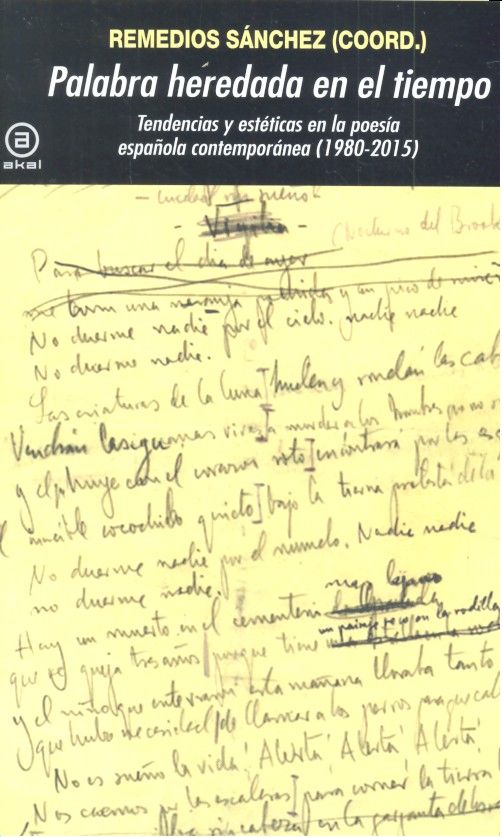 REMEDIOS SÁNCHEZ (COORD.)
Palabra heredada en el tiempo
Tendencias y estéticas en la poesía
española contemporánea (1980-2015)
a
akal
- ciudad sin sueño -
- Vigilia -
(Nocturno del Brook
Para buscar el dia de ayer
me
una naranja podrida y un
No duerme nadie por el cielo. Nadie nadie
No duerme nadie.
Las criaturas de la luna] huelen y rondan las cab
Vendrán las iguanas vivas] a morder a los hombres que no s
y el que huye con el corazon roto] encontrará por las es
al increible cocodrilo quieto] bajo la tierna protesta de los
No duerme nadie por el mundo. Nadie nadie
no duerme nadie.
mas lejano
Hay un muerto en el cementerio
un paisaje seco en la rodilla
que se queja tres años porque tiene
y el niño que enterraron esta mañana lloraba tanto
que hubo necesidad] de llamar a los perros para que cal
No es sueño la vida! Alerta! Alerta! Alerta!
Nos caemos por las escaleras] para comer la tierra
en la garganta de los